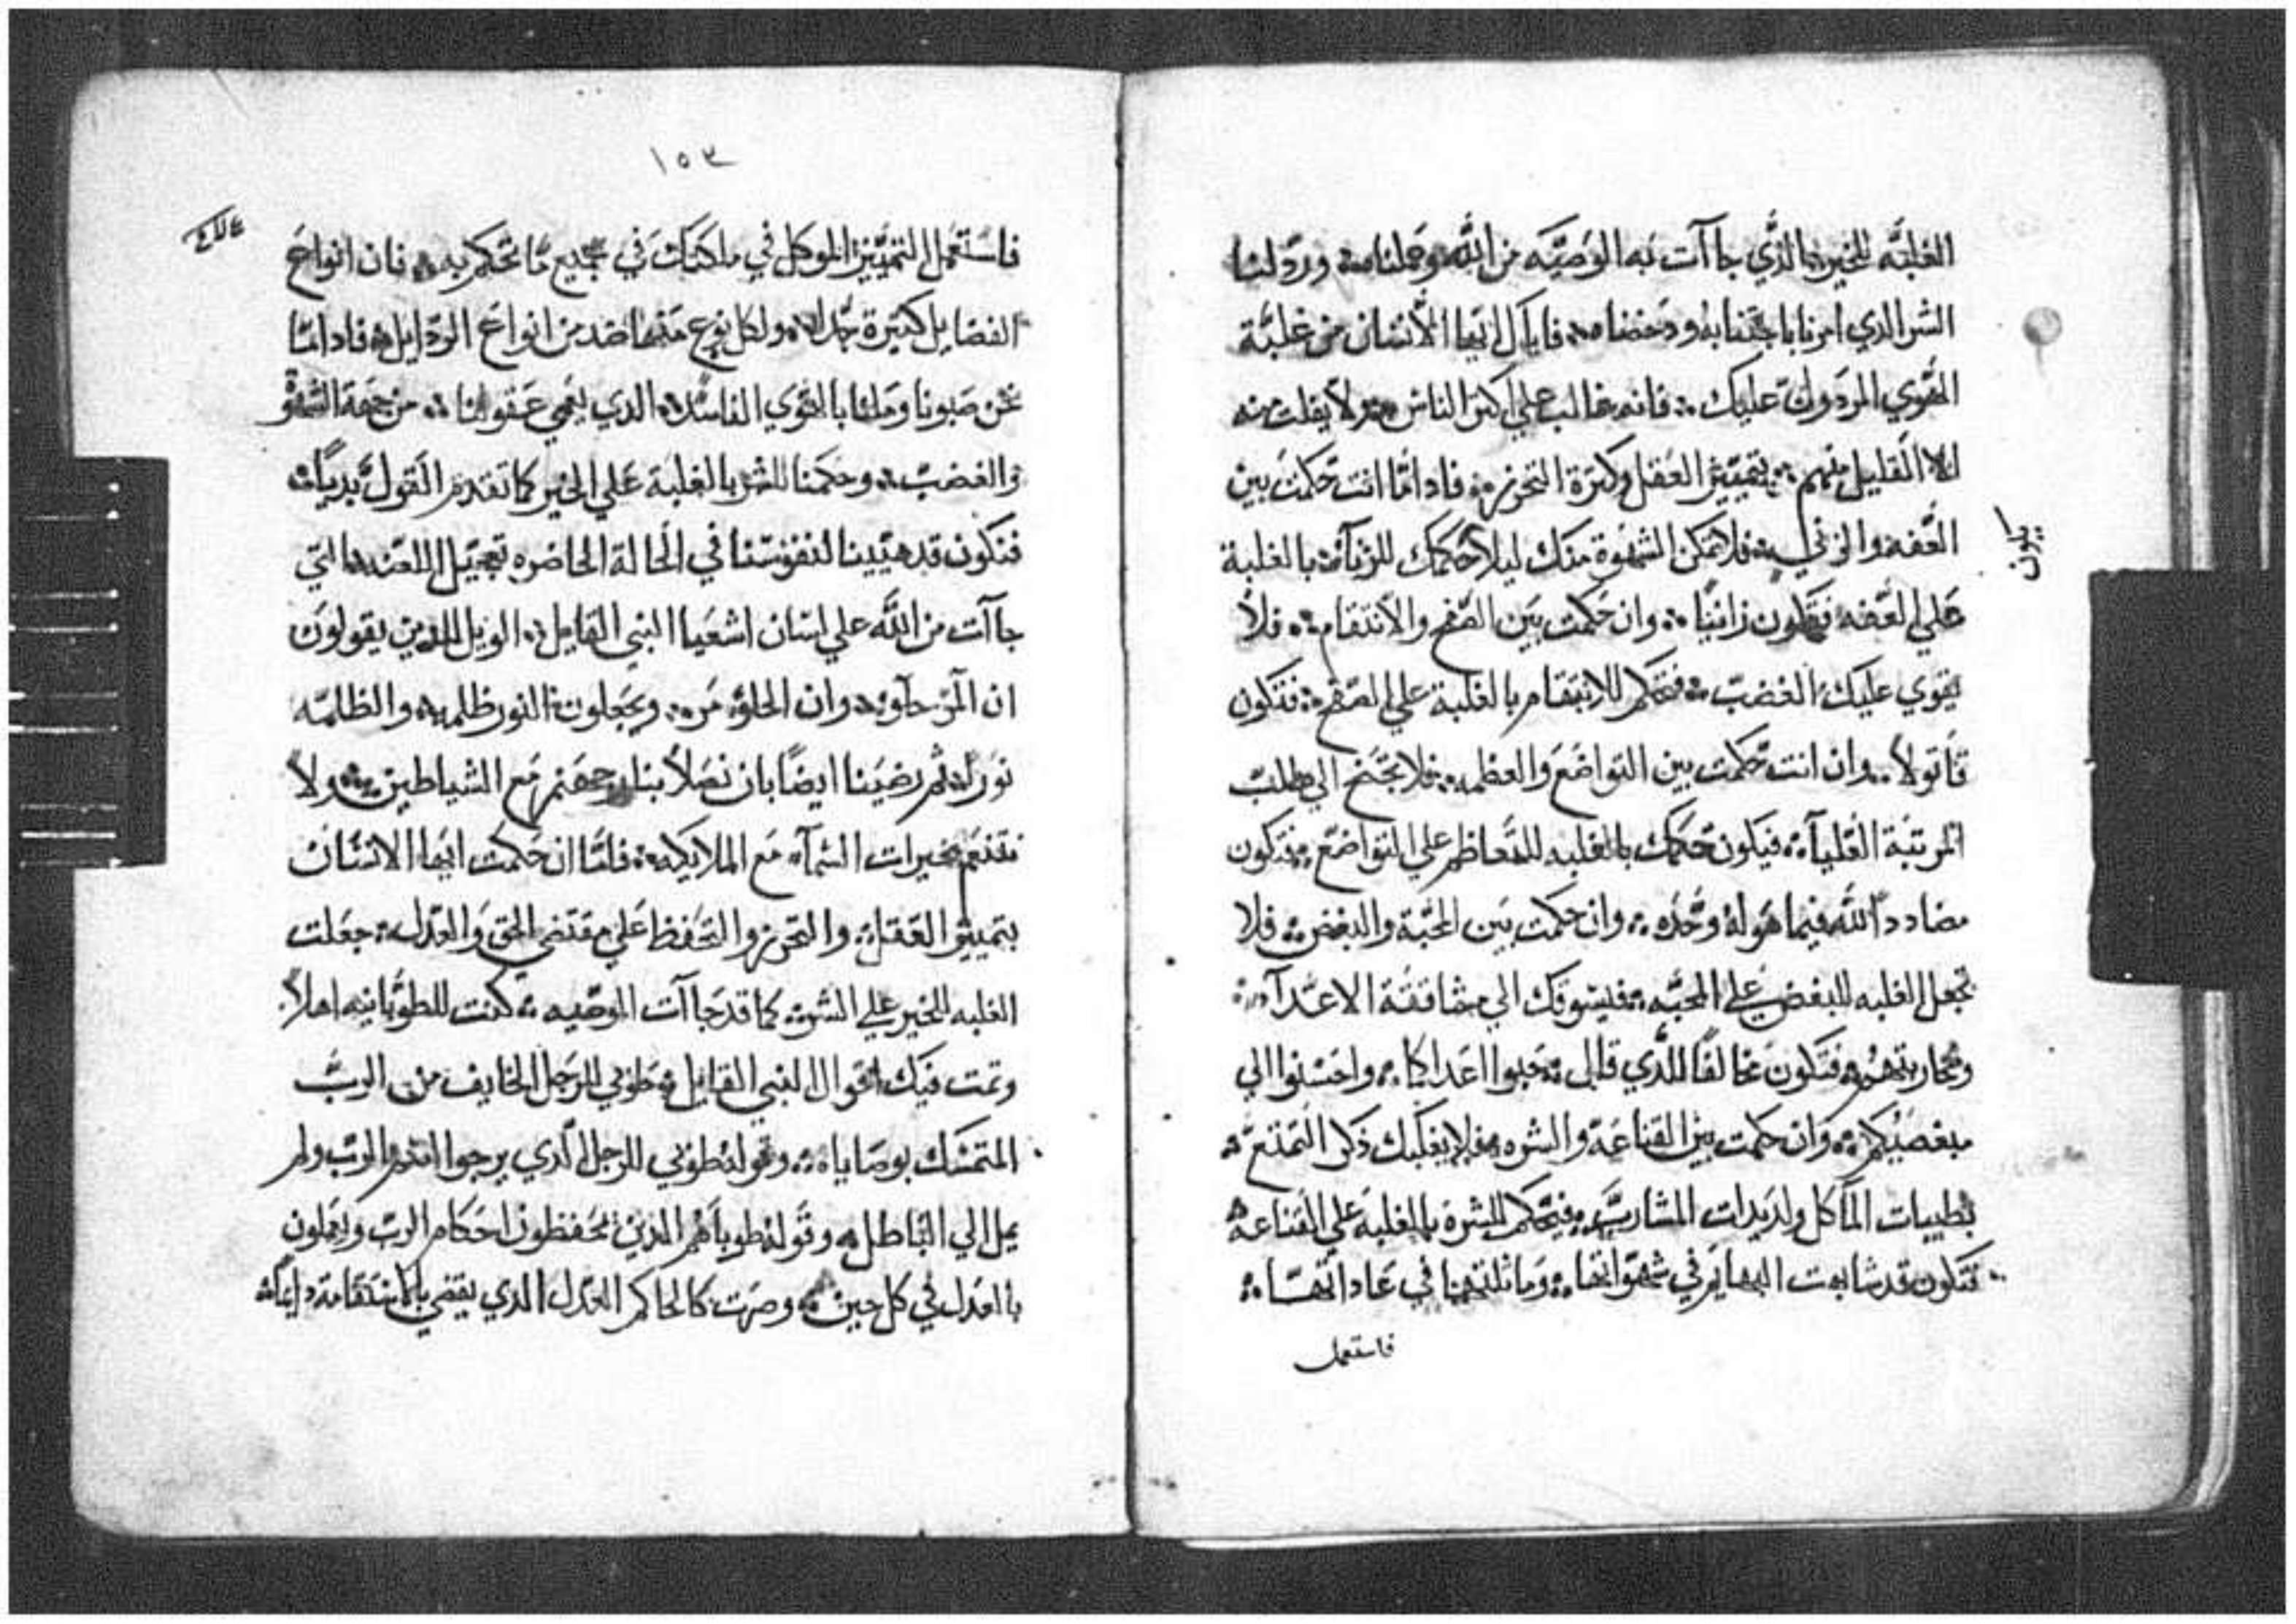 الغلبَّه للخير الذَّي جاآت به الوَصيَّه من اللَّه وَحملنا ورَدّ لنا
الشر الذي امرنا باجتنابهُ ودَحضنا فاياك ايها الأنسَان من غلبَّة
القَّوي المردَولَّ عليك فانه غالب علي اكتر الناس ولاَ يفلت منه
الا القليل منهم بتمَّييز العَقل وكترة التحرز فادامَّا انت حَكمت بين
العَّفه والزني فلا تمَّكن الشهوة منَك ليلا تحكمك للزنآة بالغلبة
عَلي العَّفه فتَكون زانيًا وان حَكمت بَين الصَّفح والأنتقام فلأ
يقوي عليَك الغضبّ فتحكم للانتقام بالغلبة علي الصّفح فتكون
قاتولاً وان انت حّكمت بين التواضَع وَالعظمه فلا تجَنح الي طلب
المرتبَة العُليآة فيَكون حَكمك بالغلبه للتعاظم علي التواضع فتكون
مضاددًا للَّه فيما هوَ لهُ وَحُده وان حكمت بَين المحبَّة والبغض فلا
تجعل الغلبه للبغض عَلي المحبَّه فيسَوقك الي مشاققَة الاعَدآ
ومحاربتهم فتكون مخالفًا للَّدي قال حَبوا اعَداكم واحَسنوا الي
مبغضَيكم وَان حكمت بين القناعَة والشره فلا يغلبك ذكر التَّمتع
بطيبات المأكل ولديدات المشاربّ فتحَكم للشره بالغلبة علي القناعه
فتكون قد شابهت البهايم في شهَواتها وَماثلتها في عَاداتَها
فاستعمل
يكون
١٥٣
فاستَعمل التمَّييز الموكل في ملكتك في جميع ما تحَكم به فان انواعَ
الفضايل كتيرة جَّدا ولكل نوع مَنها ضد من انواعَ الردايل فادامّا
نحن صَبونا ومَلنا بالقَوي الفاسَده الدي يعَمي عَقولنا من جهَة الشهَوة
والغضبّ وحكمنا للشر بالغلبَة عَلي الخير كما تقدم القول بَدياً
فنَكون قد هيَّينا لنفوسَنا في الحَالة الحاضره تعجَيل اللعَنه التي
جاآت من اللَّه علي لسَان اشعَيا النبي القايل الويل للدين يقولونَ
ان المَّر حَلو وان الحلو مَر ويجَعلون النور ظلمه والظلمَه
نورَاً ثم رضيَنا ايضًا بان نصَلا بنار جهَنم مَع الشياطين ولاَ
نتنعَم بخيرات السَمآء مَع الملايكه فامَّا ان حَكمت ايها الانسَان
بتمييز العَقل والتحَرز والتحَفظ عَلي مقتضي الحَق وَالعَدل جعَلت
الغلبه للخير علي الشر كما قد جَاآت الوصَيه كنت للطوبَانيه اهلاً
وتمت فيَك اقَوال النبي القايل طوَبي للرجَل الخايف من الربَّ
المتمسَّك بوصَاياه وقولهُ طوَبي للرجل الَّدي يرجوا اسَم الربّ ولم
يمل الي البَاطل وقوَلهُ طوباهَم الدين يحَفظون احَكام الربّ وَيعَملون
بالعدَل في كل حين وصرَت كالحاكم العَدل الدي يقضي بالاستقامة